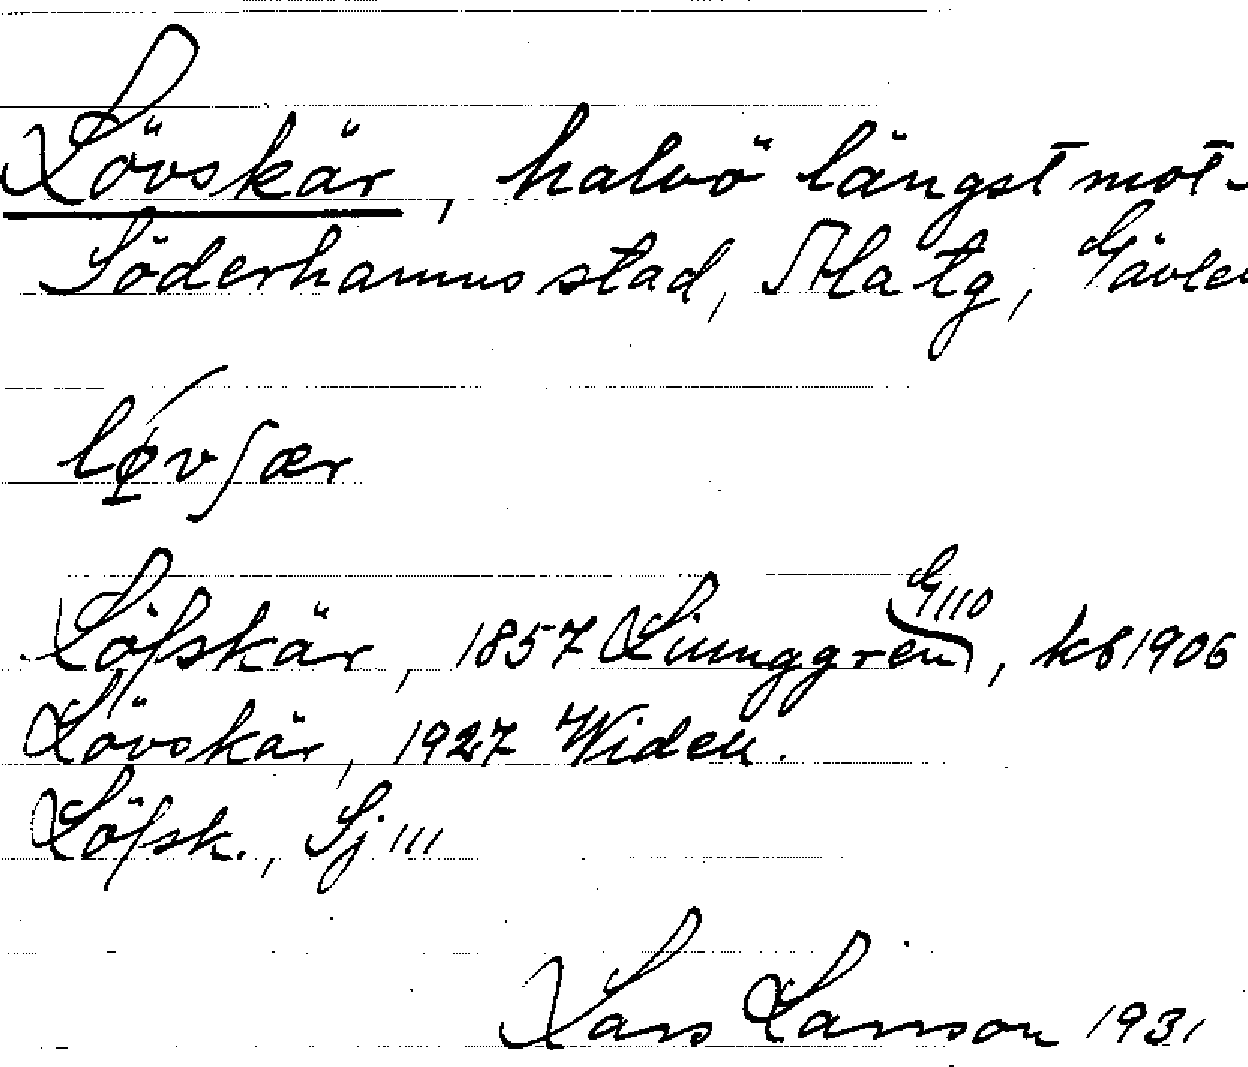 Lövskär, halvö längst mot
Söderhamns stad, Ala tg, Gävle
lǿ̱vʃær
G110
Löfskär, 1857 Ljunggren, kb 1906
Lövskär, 1927 Widen.
Löfsk., Sj 111
Lars Larsson 1931